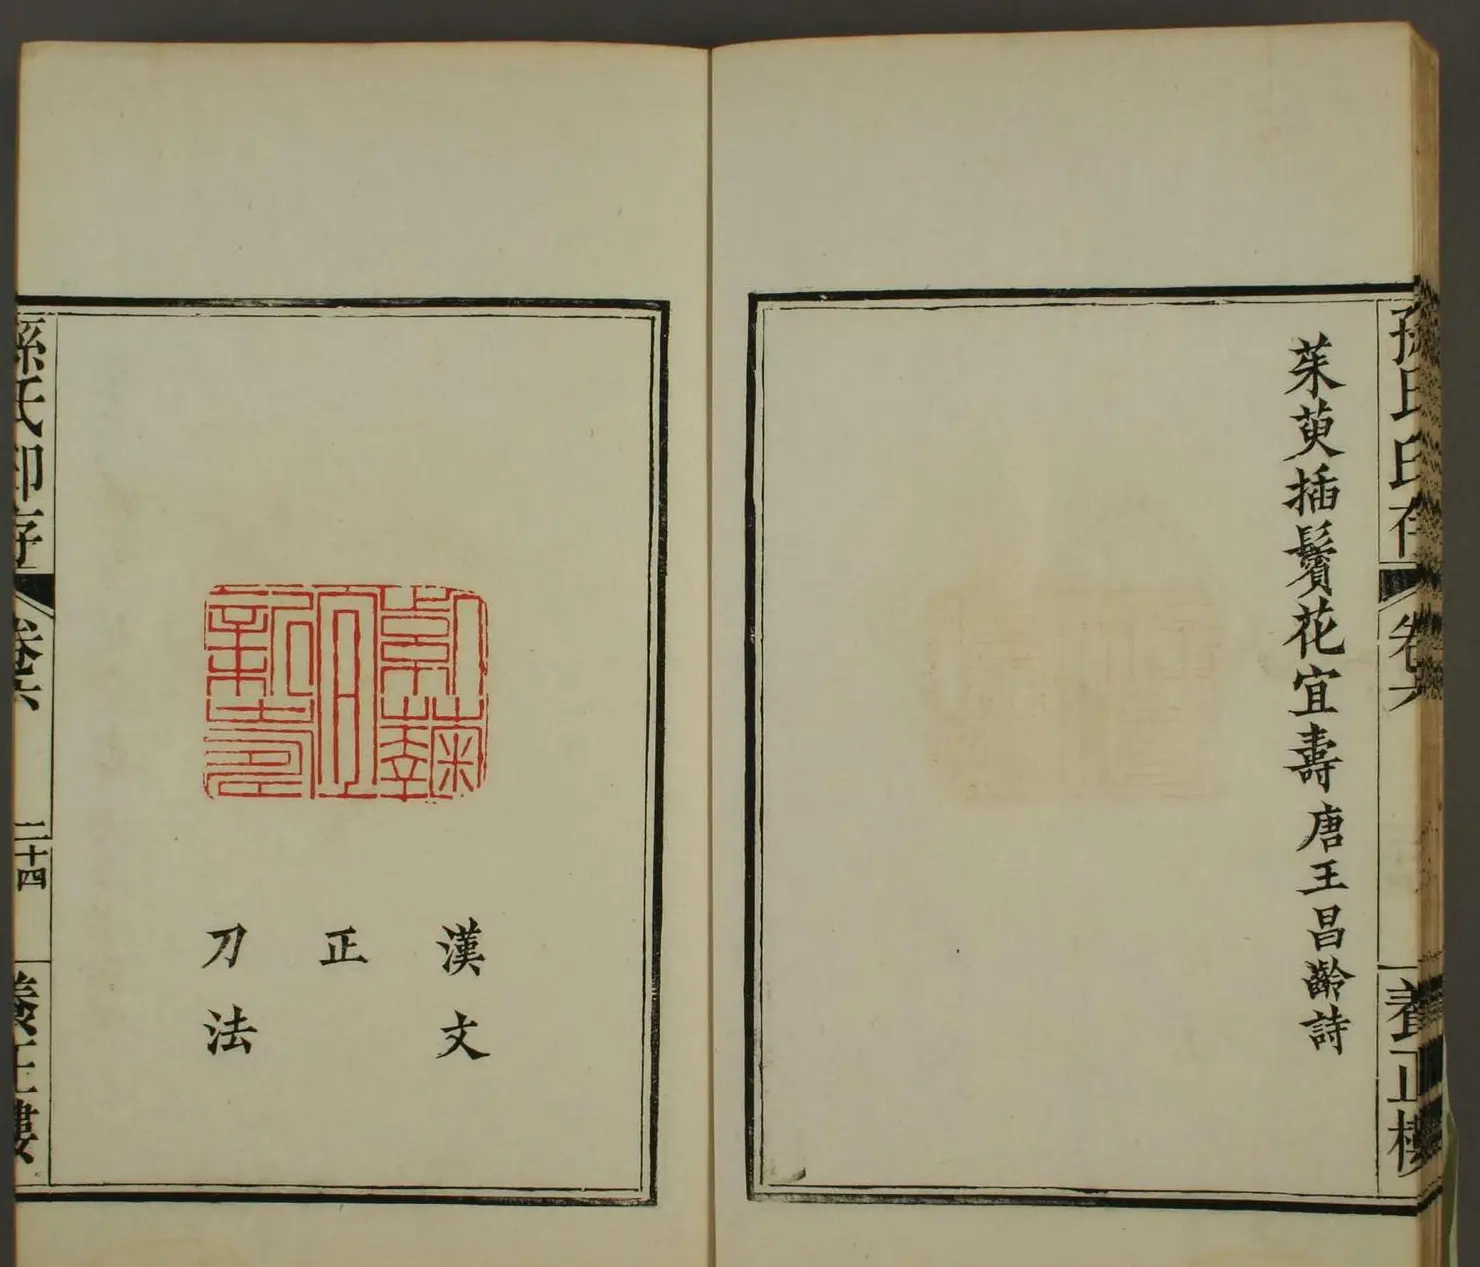 孫氏印存
卷六
養正樓
茱萸插鬢花宜壽唐王昌齡詩
漢文
正
刀法
孫氏印存
卷六
二十四
養正樓